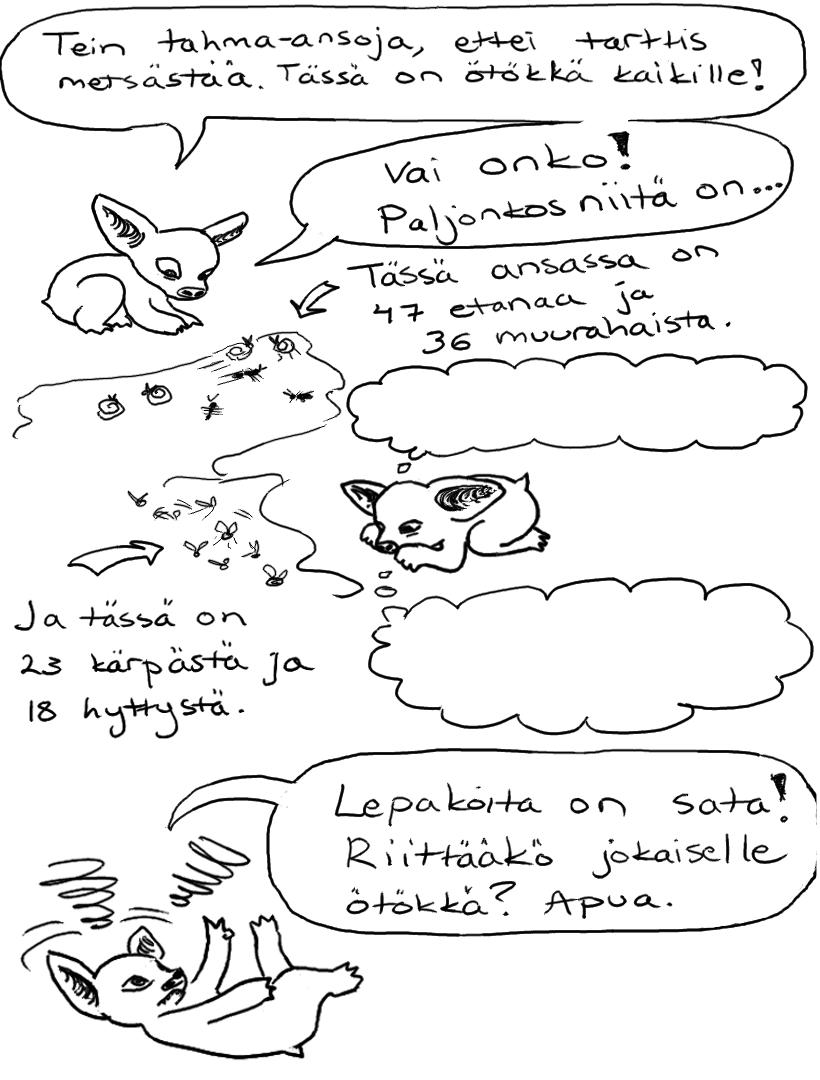 Tein tahma-ansoja, ettei tarttis
metsästää. Tässä on ötökkä kaikille!
Vai onko!
Paljonkos niitä on...
Tässä ansassa on
47 etanaa ja
36 muurahaista.
Ja tässä on
23 kärpästä ja
18 hyttystä.
Lepakoita on sata!
Riittääkö jokaiselle
ötökkä? Apua.